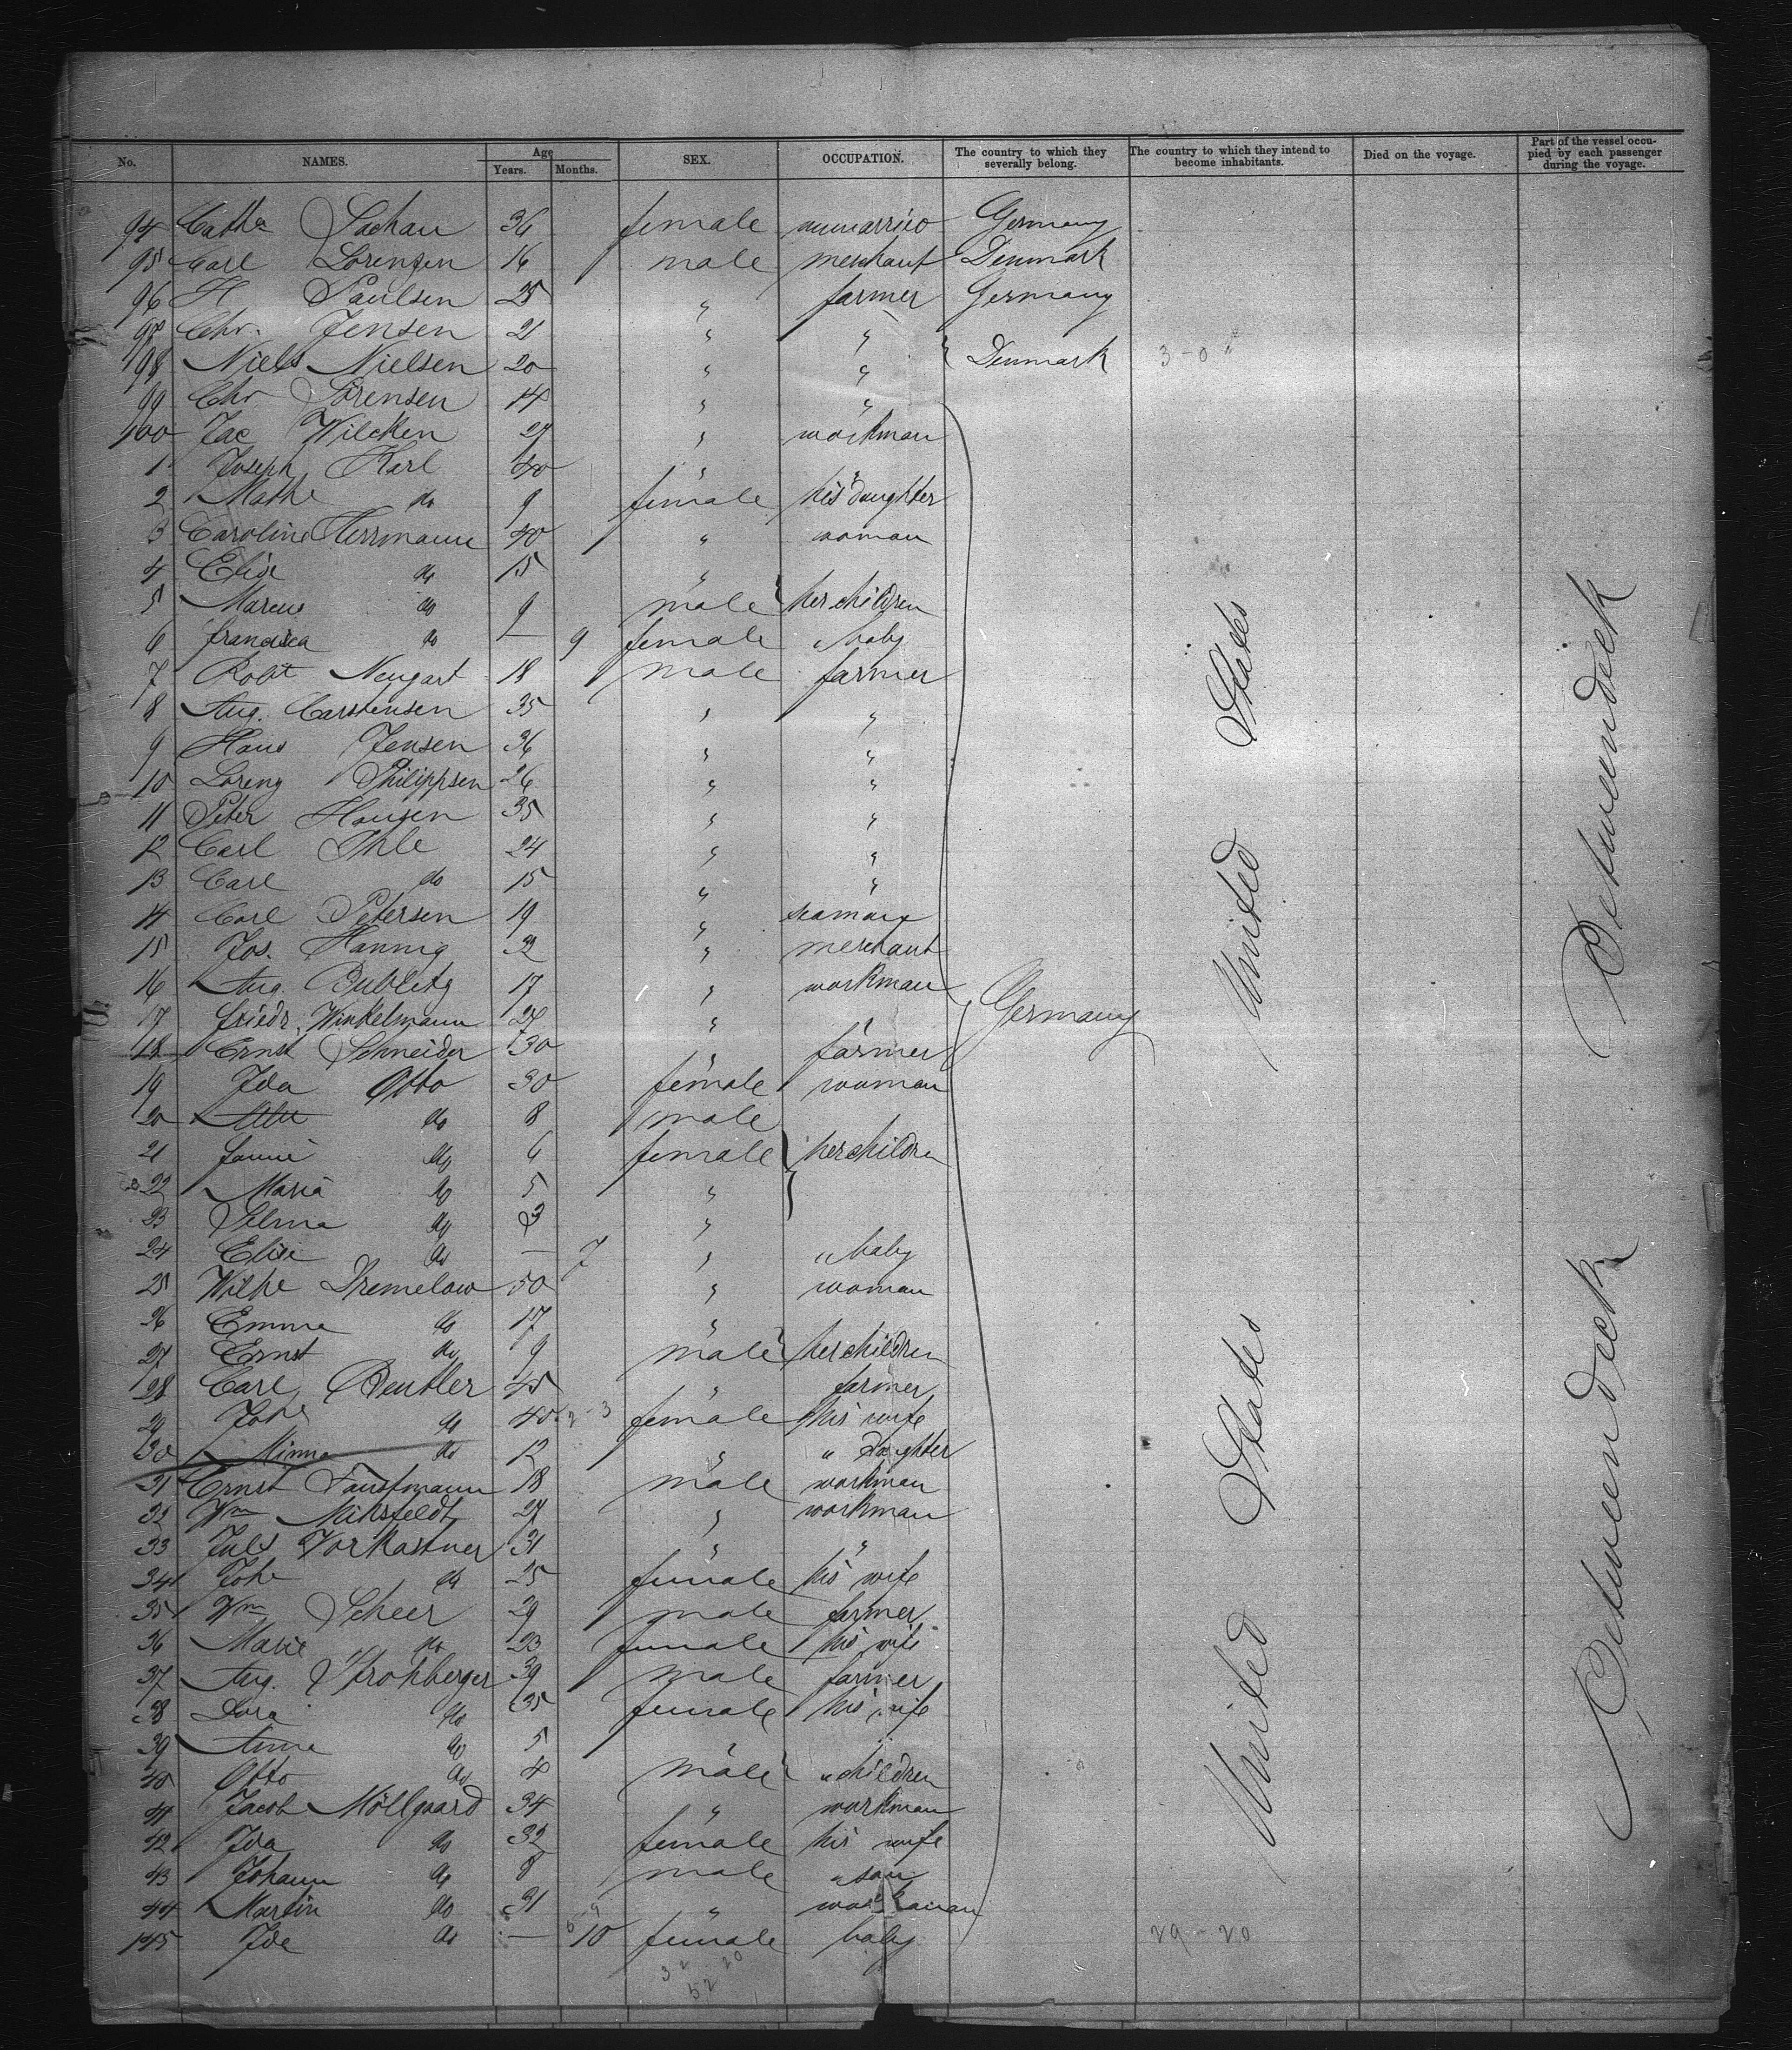 No. NAMES. Age Years. Months. SEX. OCCUPATION. The country to which they severally belong. The country to which they intend to become inhabitants. Died on the voyage. Part of the vessel occupied by each passenger during the voyage.
94 Cathe Sachau 36 female unmarried Germany
95 Carl Lorenzen 16 male merchant Denmark
96 H Paulsen 25 " farmer Germany
97 Chr. Jensen 21 " "
98 Niels Nielsen 20 " " Denmark 3-0
99 Chr Sörensen 14 " "
100 Jac Wilcken 27 " workman
1 Joseph Karl 40 " "
2 Mathe do 9 female his daughter
3 Caroline Herrmann 40 " woman
4 Elise do 15 "
5 Marcus do 9 male her children
6 francisca do — 9 female " baby
7 Robt Neugart 18 male farmer
8 Aug. Carstensen 35 " "
9 Hans Jensen 36 " "
10 Lorenz Philippsen 26 " "
11 Peter Hansen 35 " "
12 Carl Ihle 24 " "
13 Carl do 15 " "
14 Carl Petersen 19 " seaman
15 Jos. Hannig 32 " merchant
16 Aug. Bublitz 17 " workman
17 friedr. Winkelmann 27 " " Germany
18 Ernst Schneider 30 " farmer
19 Ida Otto 30 female woman
20 do 8 male
21 fanni do 6 female her children
22 Maria do 5 "
23 Selma do 3 "
24 Elise do — 7 " " baby
25 Wilhe Dremelow 50 " woman
26 Emma do 17 "
27 Ernst do 9 male her children
28 Carl Beutler 45 " farmer
29 Johe do 40 2-3 female his wife
30 Minna do 12 " " daughter
31 Ernst Faustmann 18 male workman
32 Wm Mihsfeldt 27 " workman
33 Juls Vorkastner 31 " "
34 Johe do 25 female his wife
35 Wm Scheer 29 male farmer
36 Marie do 23 female his wife
37 Aug. Strohberger 39 male farmer
38 Dora do 35 female his wife
39 Anna do 5 "
40 Otto do 4 male " children
41 Jacob Möllgaard 34 " workman
42 Ida do 32 female his wife
43 Johann do 8 male " son
44 Martin do 31 " workman
145 Ida do — 10 female baby 29-20
32 20
52
United States
United States
Betweendeck
Betweendeck